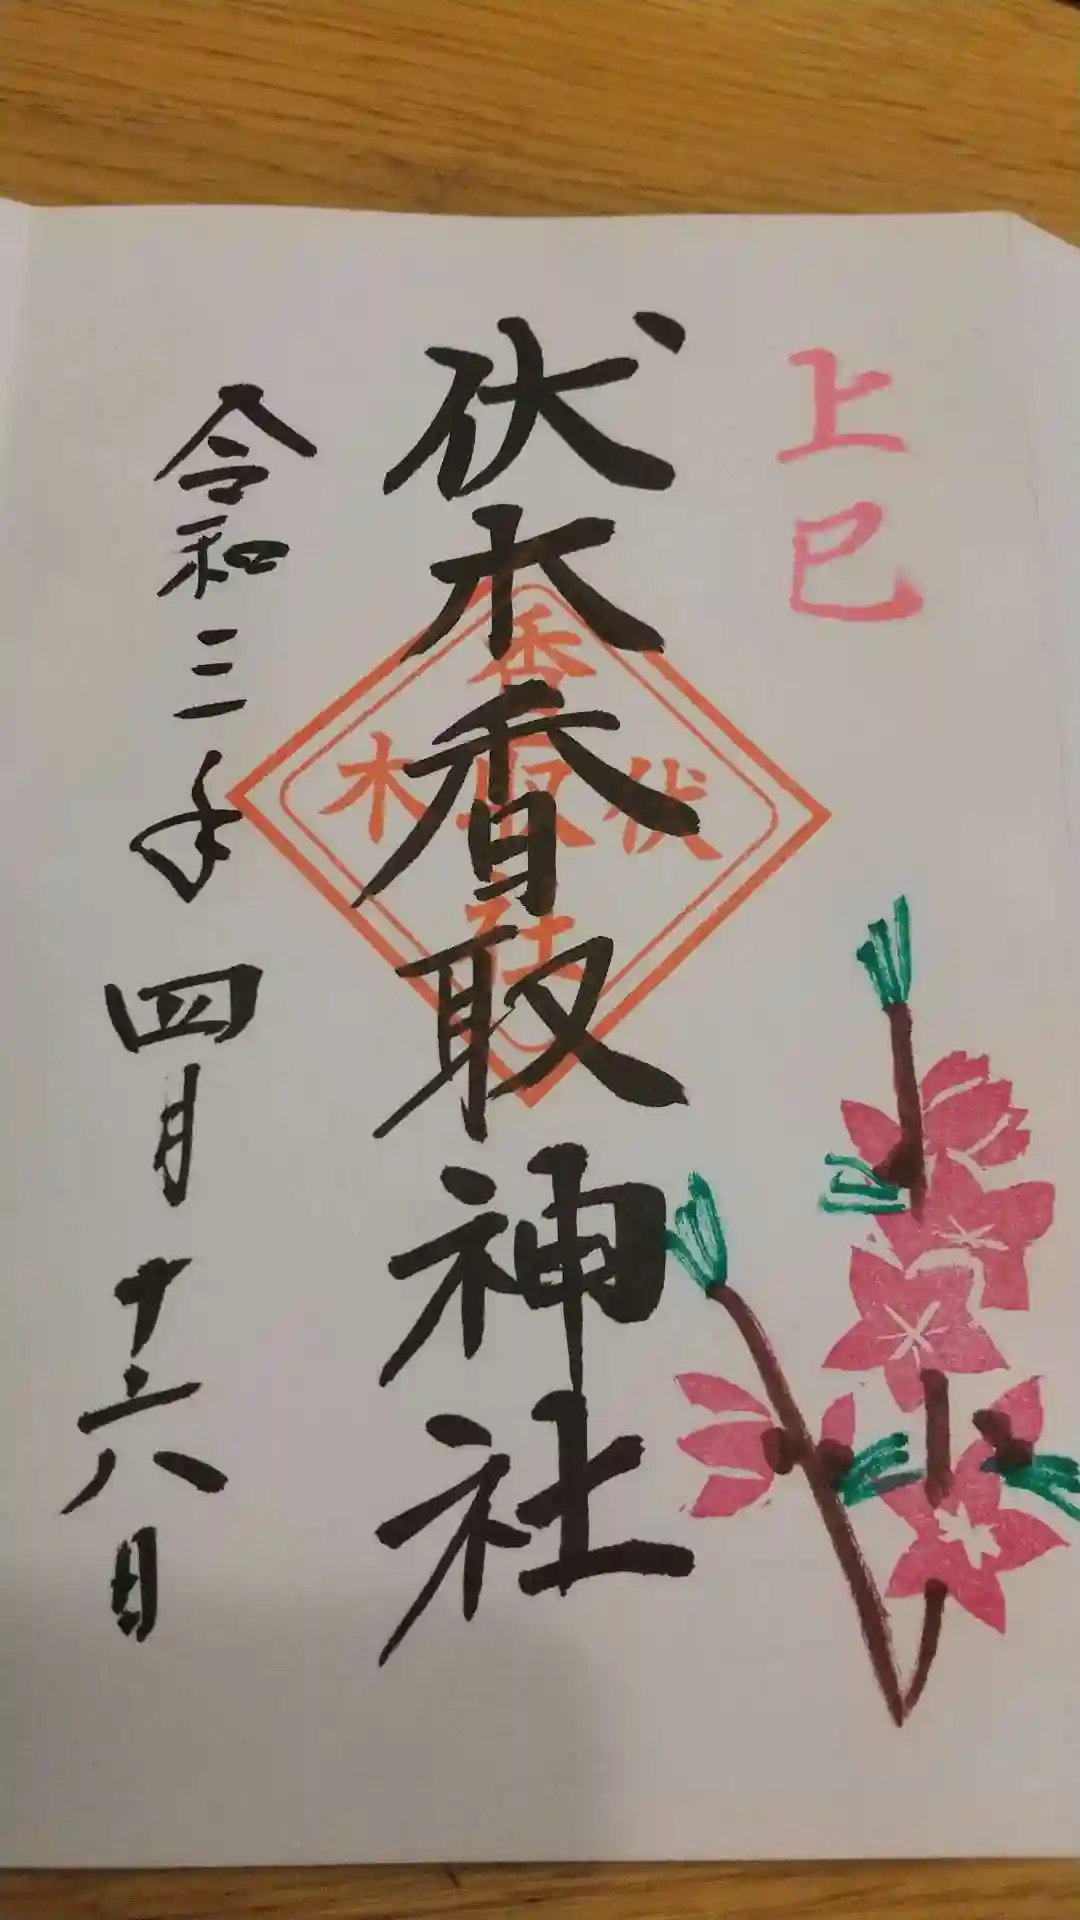 上巳
伏木香取神社
香取社
伏木
令和三年四月十六日